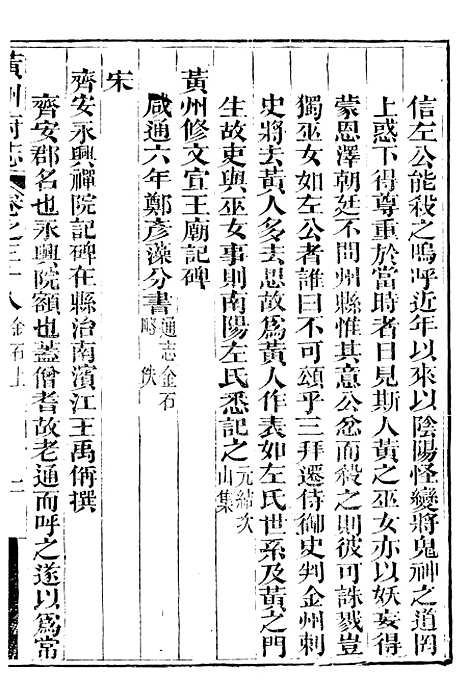 信左公能殺之嗚呼近年以來以陰陽怪變將鬼神之道罔
上惑下得尊重於當時者日見斯人黃之巫女亦以妖妄得
蒙恩澤朝廷不問州縣惟其意公忿而殺之則彼可誅戮豈
獨巫女如左公者誰曰不可頌乎三拜遷侍御史判金州刺
史將去黃人多去思故爲黃人作表如左氏世系及黃之門
生故吏與巫女事則南陽左氏悉記之元結次山集
黃州修文宣王廟記碑
咸通六年鄭彥藻分書通志金石略佚
宋
齊安永興禪院記碑在縣治南濱江王禹偁撰
齊安郡名也永興院額也蓋僧耆故老通而呼之遂以爲常
黃州府志
卷之三十八
金石上
二